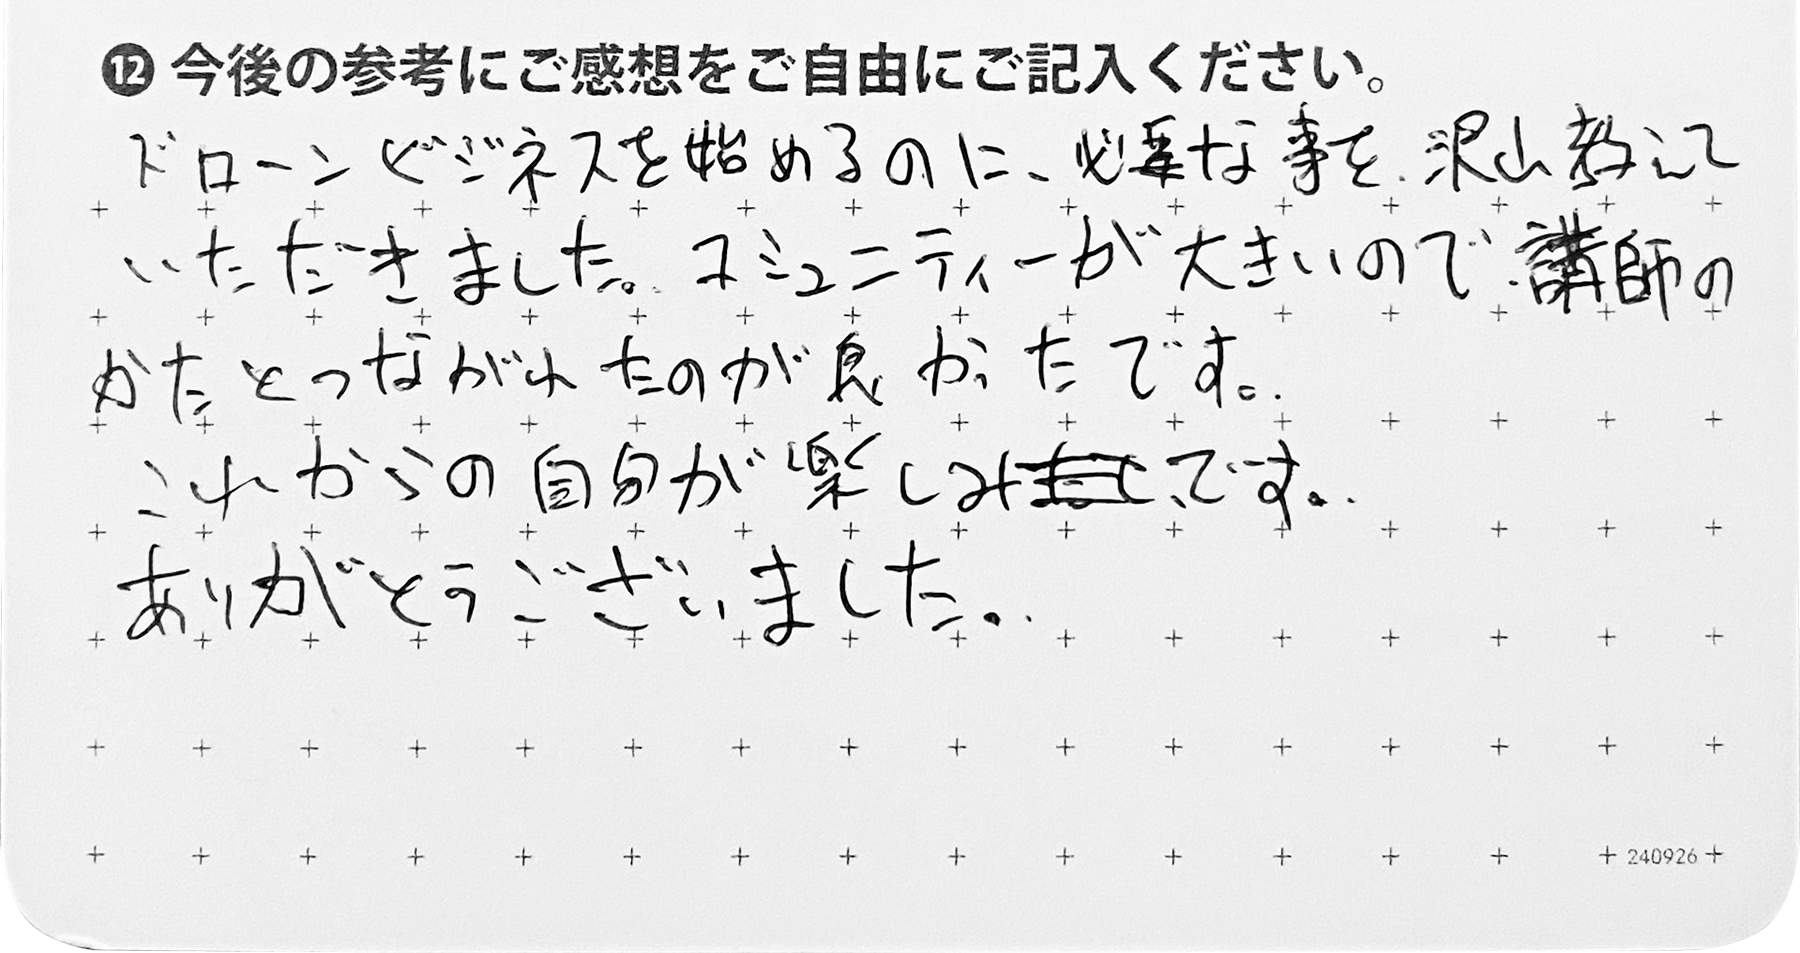 ⓬ 今後の参考にご感想をご自由にご記入ください。
ドローンビジネスを始めるのに、必要な事を、沢山教えて
いただきました。コミュニティーが大きいので、講師の
かたとつながれたのが良かったです。
これからの自分が楽しみです。
ありがとうございました。
240926